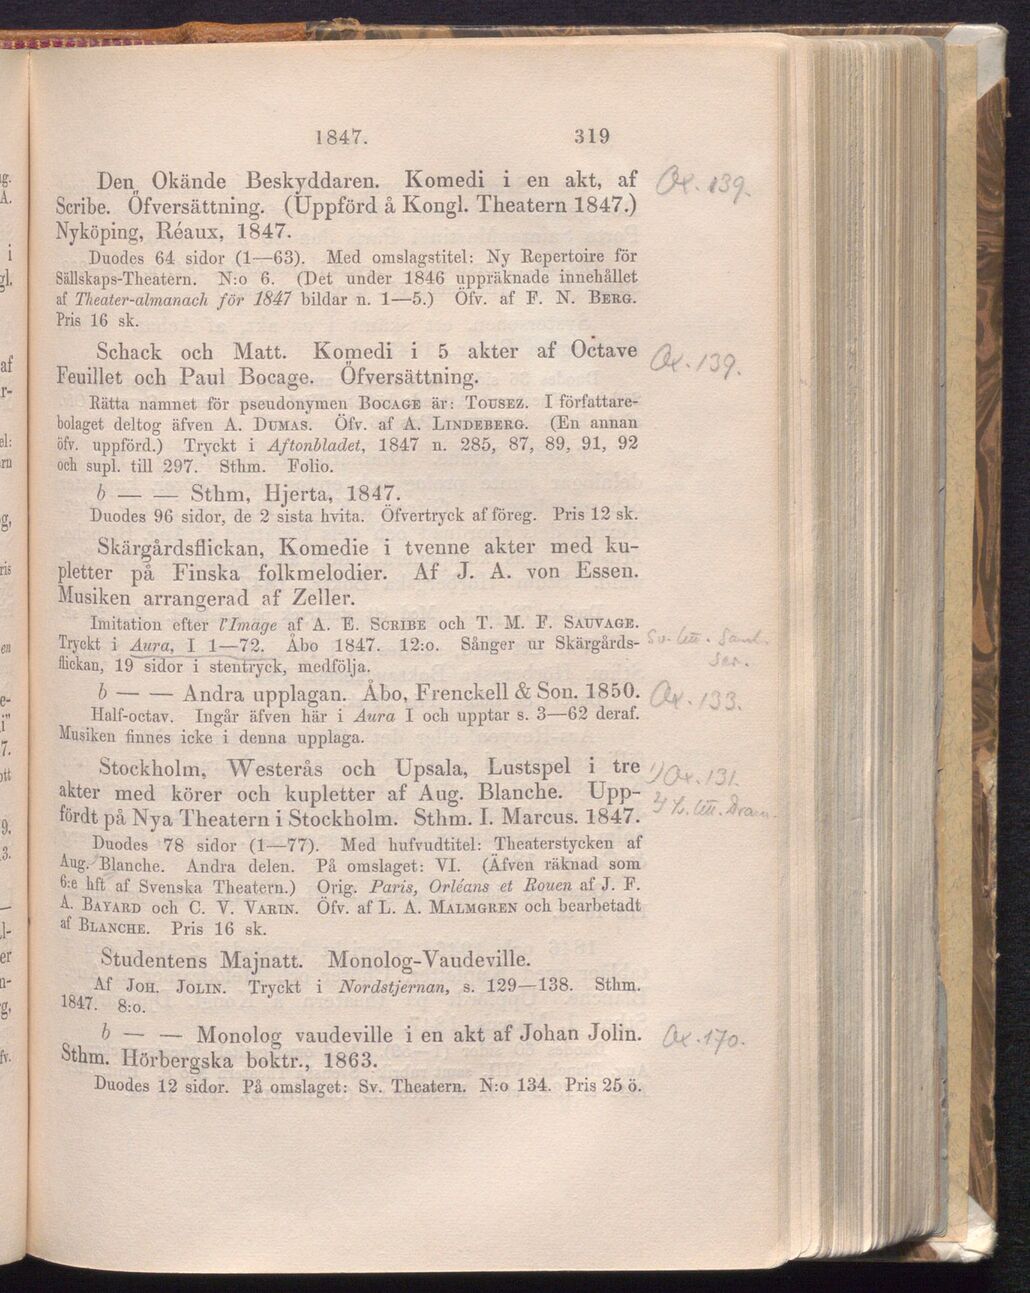 1847. 319
Den Okände Beskyddaren. Komedi i en akt, af
Scribe. Öfversättning. (Uppförd å Kongl. Theatern 1847.)
Nyköping, Réaux, 1847.
Ox. 139.
Duodes 64 sidor (1—63). Med omslagstitel: Ny Repertoire för
Sällskaps-Theatern. N:o 6. (Det under 1846 uppräknade innehållet
af Theater-almanach för 1847 bildar n. 1—5.) Öfv. af F. N. Berg.
Pris 16 sk.
Schack och Matt. Komedi i 5 akter af Octave
Feuillet och Paul Bocage. Öfversättning.
Ox. 139.
Rätta namnet för pseudonymen Bocage är: Tousez. I författare-
bolaget deltog äfven A. Dumas. Öfv. af A. Lindeberg. (En annan
öfv. uppförd.) Tryckt i Aftonbladet, 1847 n. 285, 87, 89, 91, 92
och supl. till 297. Sthm. Folio.
b — — Sthm, Hjerta, 1847.
Duodes 96 sidor, de 2 sista hvita. Öfvertryck af föreg. Pris 12 sk.
Skärgårdsflickan, Komedie i tvenne akter med ku-
pletter på Finska folkmelodier. Af J. A. von Essen.
Musiken arrangerad af Zeller.
Imitation efter l'Image af A. E. Scribe och T. M. F. Sauvage.
Tryckt i Aura, I 1—72. Åbo 1847. 12:o. Sånger ur Skärgårds-
flickan, 19 sidor i stentryck, medfölja.
Sv. litt. Saml.
Ser.
b — — Andra upplagan. Åbo, Frenckell & Son. 1850.
Ox. 133.
Half-octav. Ingår äfven här i Aura I och upptar s. 3—62 deraf.
Musiken finnes icke i denna upplaga.
Stockholm, Westerås och Upsala, Lustspel i tre
akter med körer och kupletter af Aug. Blanche. Upp-
fördt på Nya Theatern i Stockholm. Sthm. I. Marcus. 1847.
1) Ox. 131.
litt. Dram.
Duodes 78 sidor (1—77). Med hufvudtitel: Theaterstycken af
Aug. Blanche. Andra delen. På omslaget: VI. (Äfven räknad som
6:e hft af Svenska Theatern.) Orig. Paris, Orléans et Rouen af J. F.
A. Bayard och C. V. Varin. Öfv. af L. A. Malmgren och bearbetadt
af Blanche. Pris 16 sk.
Studentens Majnatt. Monolog-Vaudeville.
Af Joh. Jolin. Tryckt i Nordstjernan, s. 129—138. Sthm.
1847. 8:o.
b — — Monolog vaudeville i en akt af Johan Jolin.
Sthm. Hörbergska boktr., 1863.
Ox. 170.
Duodes 12 sidor. På omslaget: Sv. Theatern. N:o 134. Pris 25 ö.